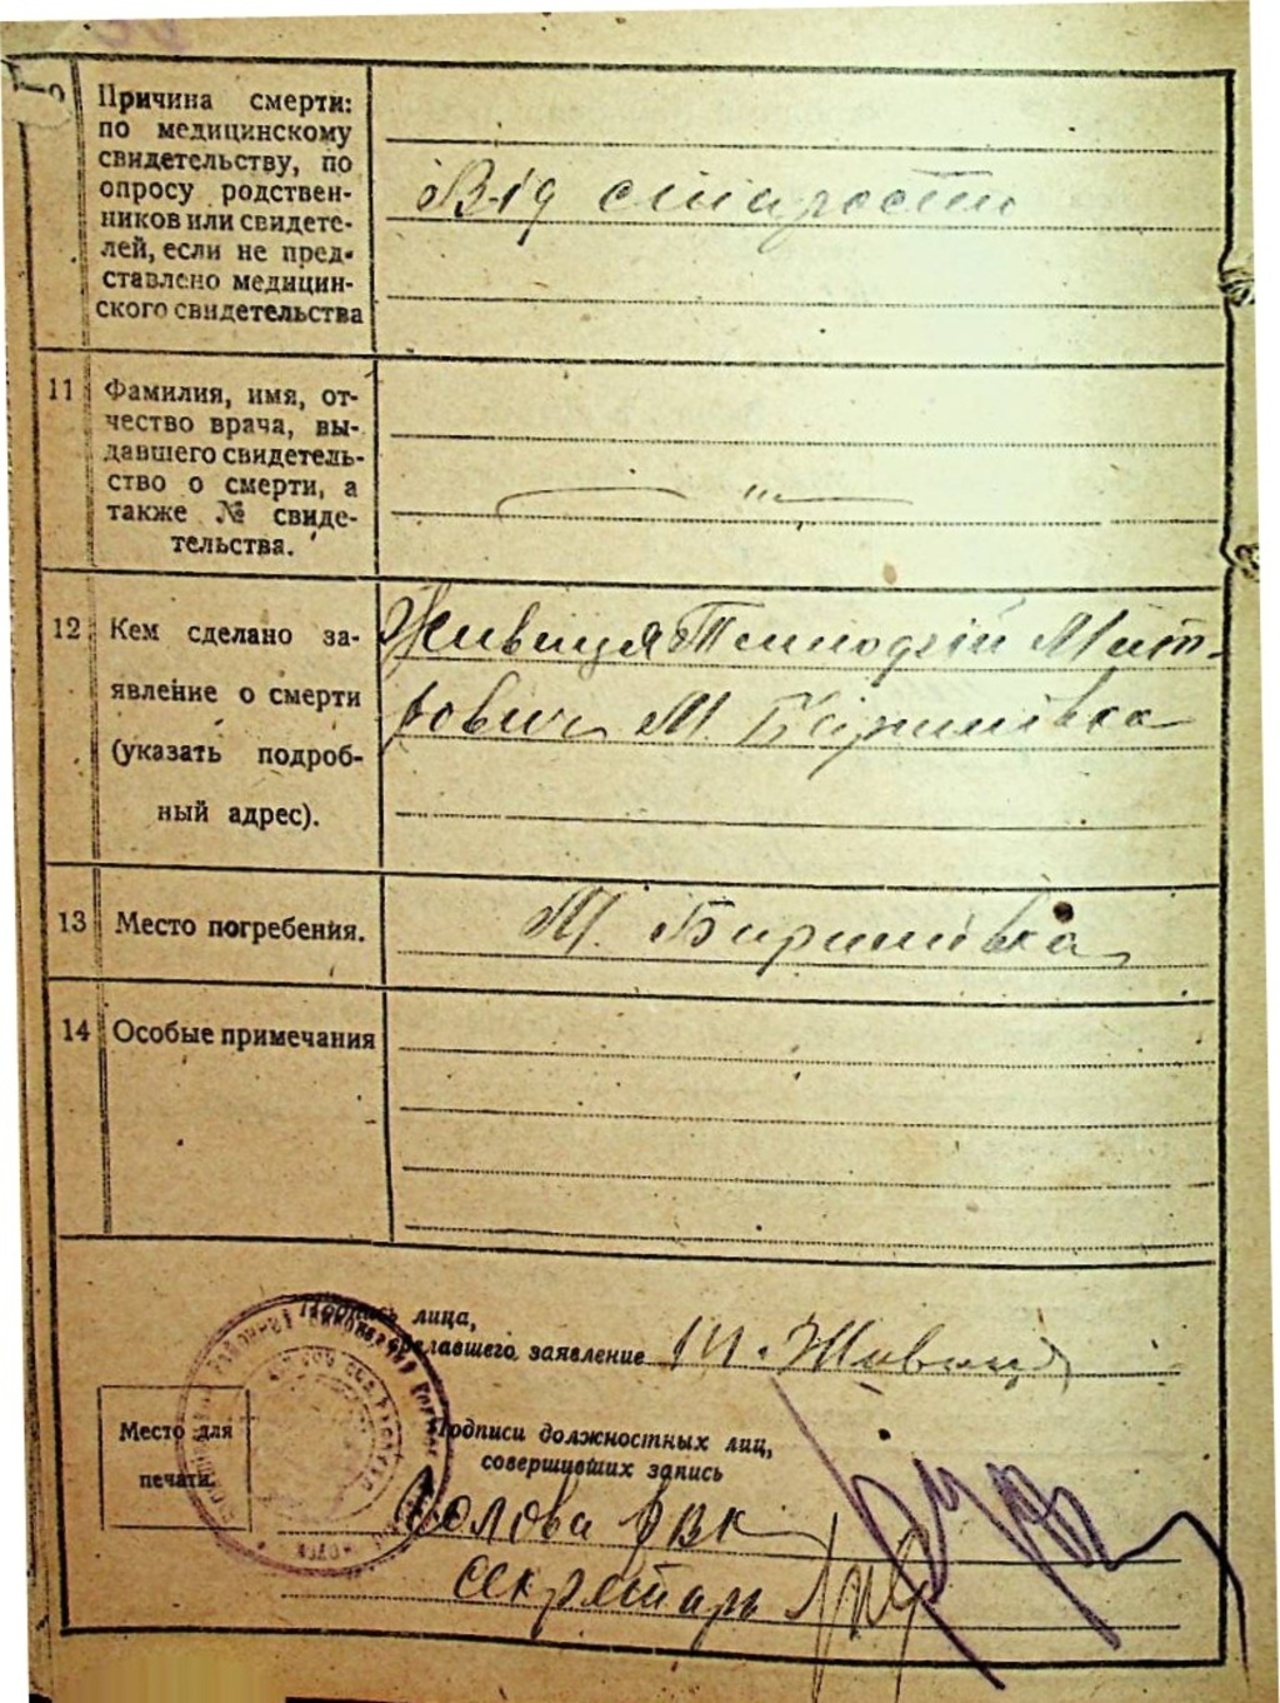 Причина смерти:
по медицинскому
свидетельству, по
опросу родствен-
ников или свидете-
лей, если не пред-
ставлено медицин-
ского свидетельства
Від старости
11 Фамилия, имя, от-
чество врача, вы-
давшего свидетель-
ство о смерти, а
также № свиде-
тельства.
— " —
12 Кем сделано за-
явление о смерти
(указать подроб-
ный адрес).
Живиця Тимофій Мит-
рович М.
13 Место погребения.
М.
14 Особые примечания
Подпись лица,
сделавшего заявление
Место для
печати.
Подписи должностных лиц,
совершивших запись
Голова РВК
секретарь